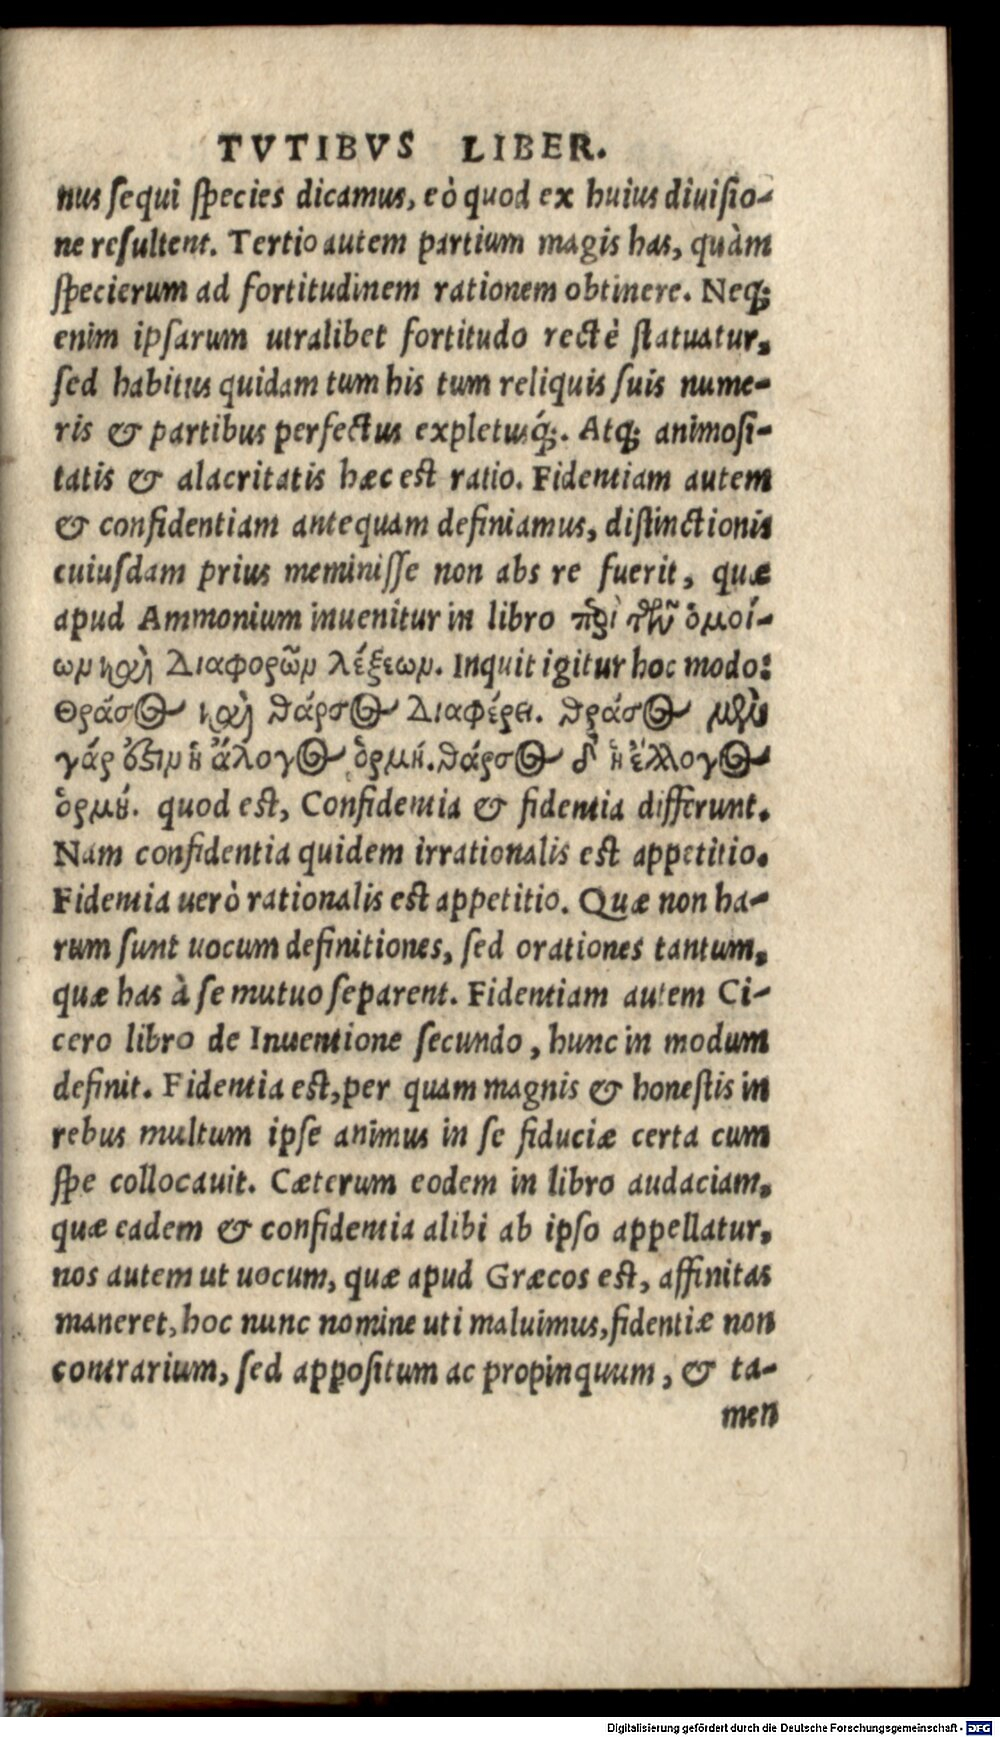 TVTIBVS LIBER.
nus sequi species dicamus, eò quod ex huius diuisio-
ne resultent. Tertio autem partium magis has, quàm
specierum ad fortitudinem rationem obtinere. Neq;
enim ipsarum utralibet fortitudo rectè statuatur,
sed habitus quidam tum his tum reliquis suis nume-
ris & partibus perfectus expletusq́;. Atq; animosi-
tatis & alacritatis hæc est ratio. Fidentiam autem
& confidentiam antequam definiamus, distinctionis
cuiusdam prius meminisse non abs re fuerit, quæ
apud Ammonium inuenitur in libro περὶ τῶν ὁμοί-
ων καὶ διαφορῶν λέξεων. Inquit igitur hoc modo:
Θράσος καὶ θάρσος διαφέρει. θράσος μὲν
γάρ ἐστιν ἡ ἄλογος ὁρμή. θάρσος δ' ἡ ἔλλογος
ὁρμή. quod est, Confidentia & fidentia differunt.
Nam confidentia quidem irrationalis est appetitio.
Fidentia uerò rationalis est appetitio. Quæ non ha-
rum sunt uocum definitiones, sed orationes tantum,
quæ has à se mutuo separent. Fidentiam autem Ci-
cero libro de Inuentione secundo, hunc in modum
definit. Fidentia est, per quam magnis & honestis in
rebus multum ipse animus in se fiduciæ certa cum
spe collocauit. Cæterum eodem in libro audaciam,
quæ eadem & confidentia alibi ab ipso appellatur,
nos autem ut uocum, quæ apud Græcos est, affinitas
maneret, hoc nunc nomine uti maluimus, fidentiæ non
contrarium, sed appositum ac propinquum, & ta-
men
Digitalisierung gefördert durch die Deutsche Forschungsgemeinschaft - DFG